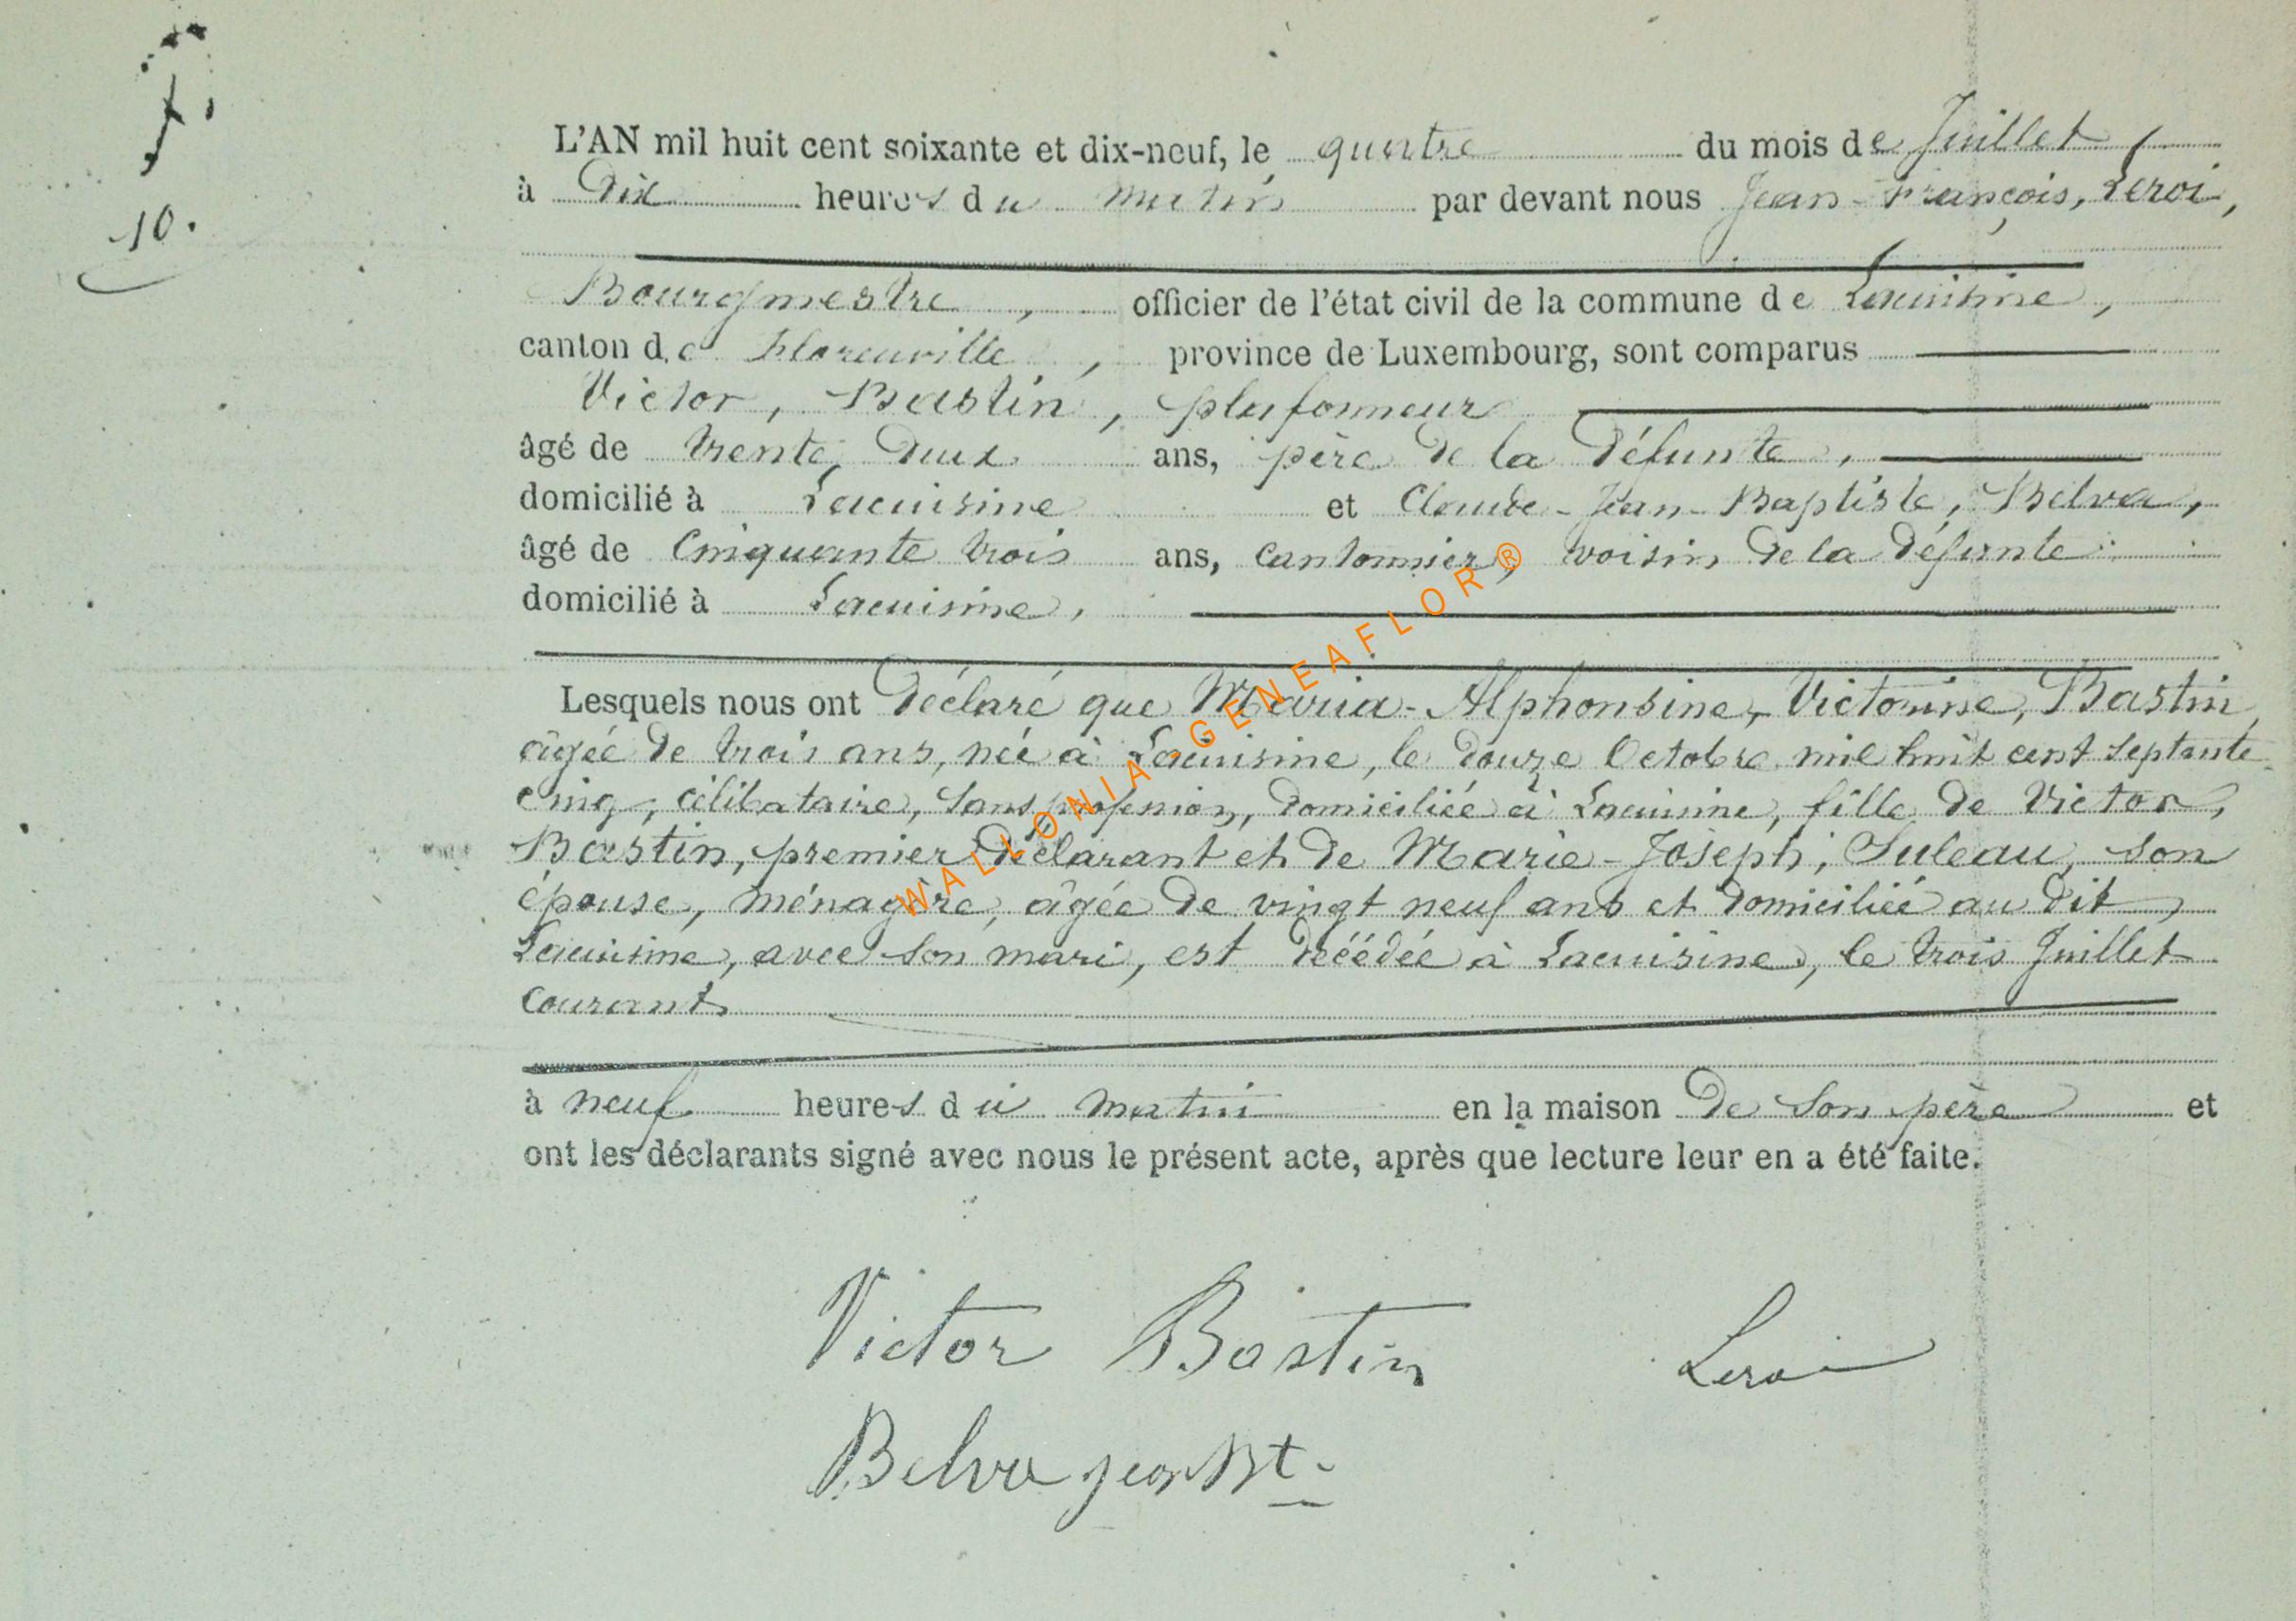 10.
L'AN mil huit cent soixante et dix-neuf, le quatre du mois de Juillet
à Dix heures du matin par devant nous Jean-François, Leroi,
Bourgmestre, officier de l'état civil de la commune de Lacuisine,
canton de Florenville, province de Luxembourg, sont comparus
Victor, Bastin, plafonneur
âgé de trente, deux ans, père de la Défunte,
domicilié à Lacuisine et Claude-Jean-Baptiste, Belva,
âgé de Cinquante trois ans, cantonnier, voisin de la défunte
domicilié à Lacuisine,
Lesquels nous ont Déclaré que Maria-Alphonsine, Victorine, Bastin,
âgée de trois ans, née à Lacuisine, le douze Octobre mil huit cent septante
cinq, célibataire, sans profession, domiciliée à Lacuisine, fille de Victor,
Bastin, premier Déclarant et de Marie-Joseph, Suleau, son
épouse, ménagère, âgée de vingt neuf ans et domiciliée au dit
Lacuisine, avec son mari, est décédée à Lacuisine, le trois Juillet
courant
à neuf heures du matin en la maison De Son père et
ont les déclarants signé avec nous le présent acte, après que lecture leur en a été faite.
WALLONIA-GENEAFLOR®
Victor Bastin Leroi
Belva jean Bt.